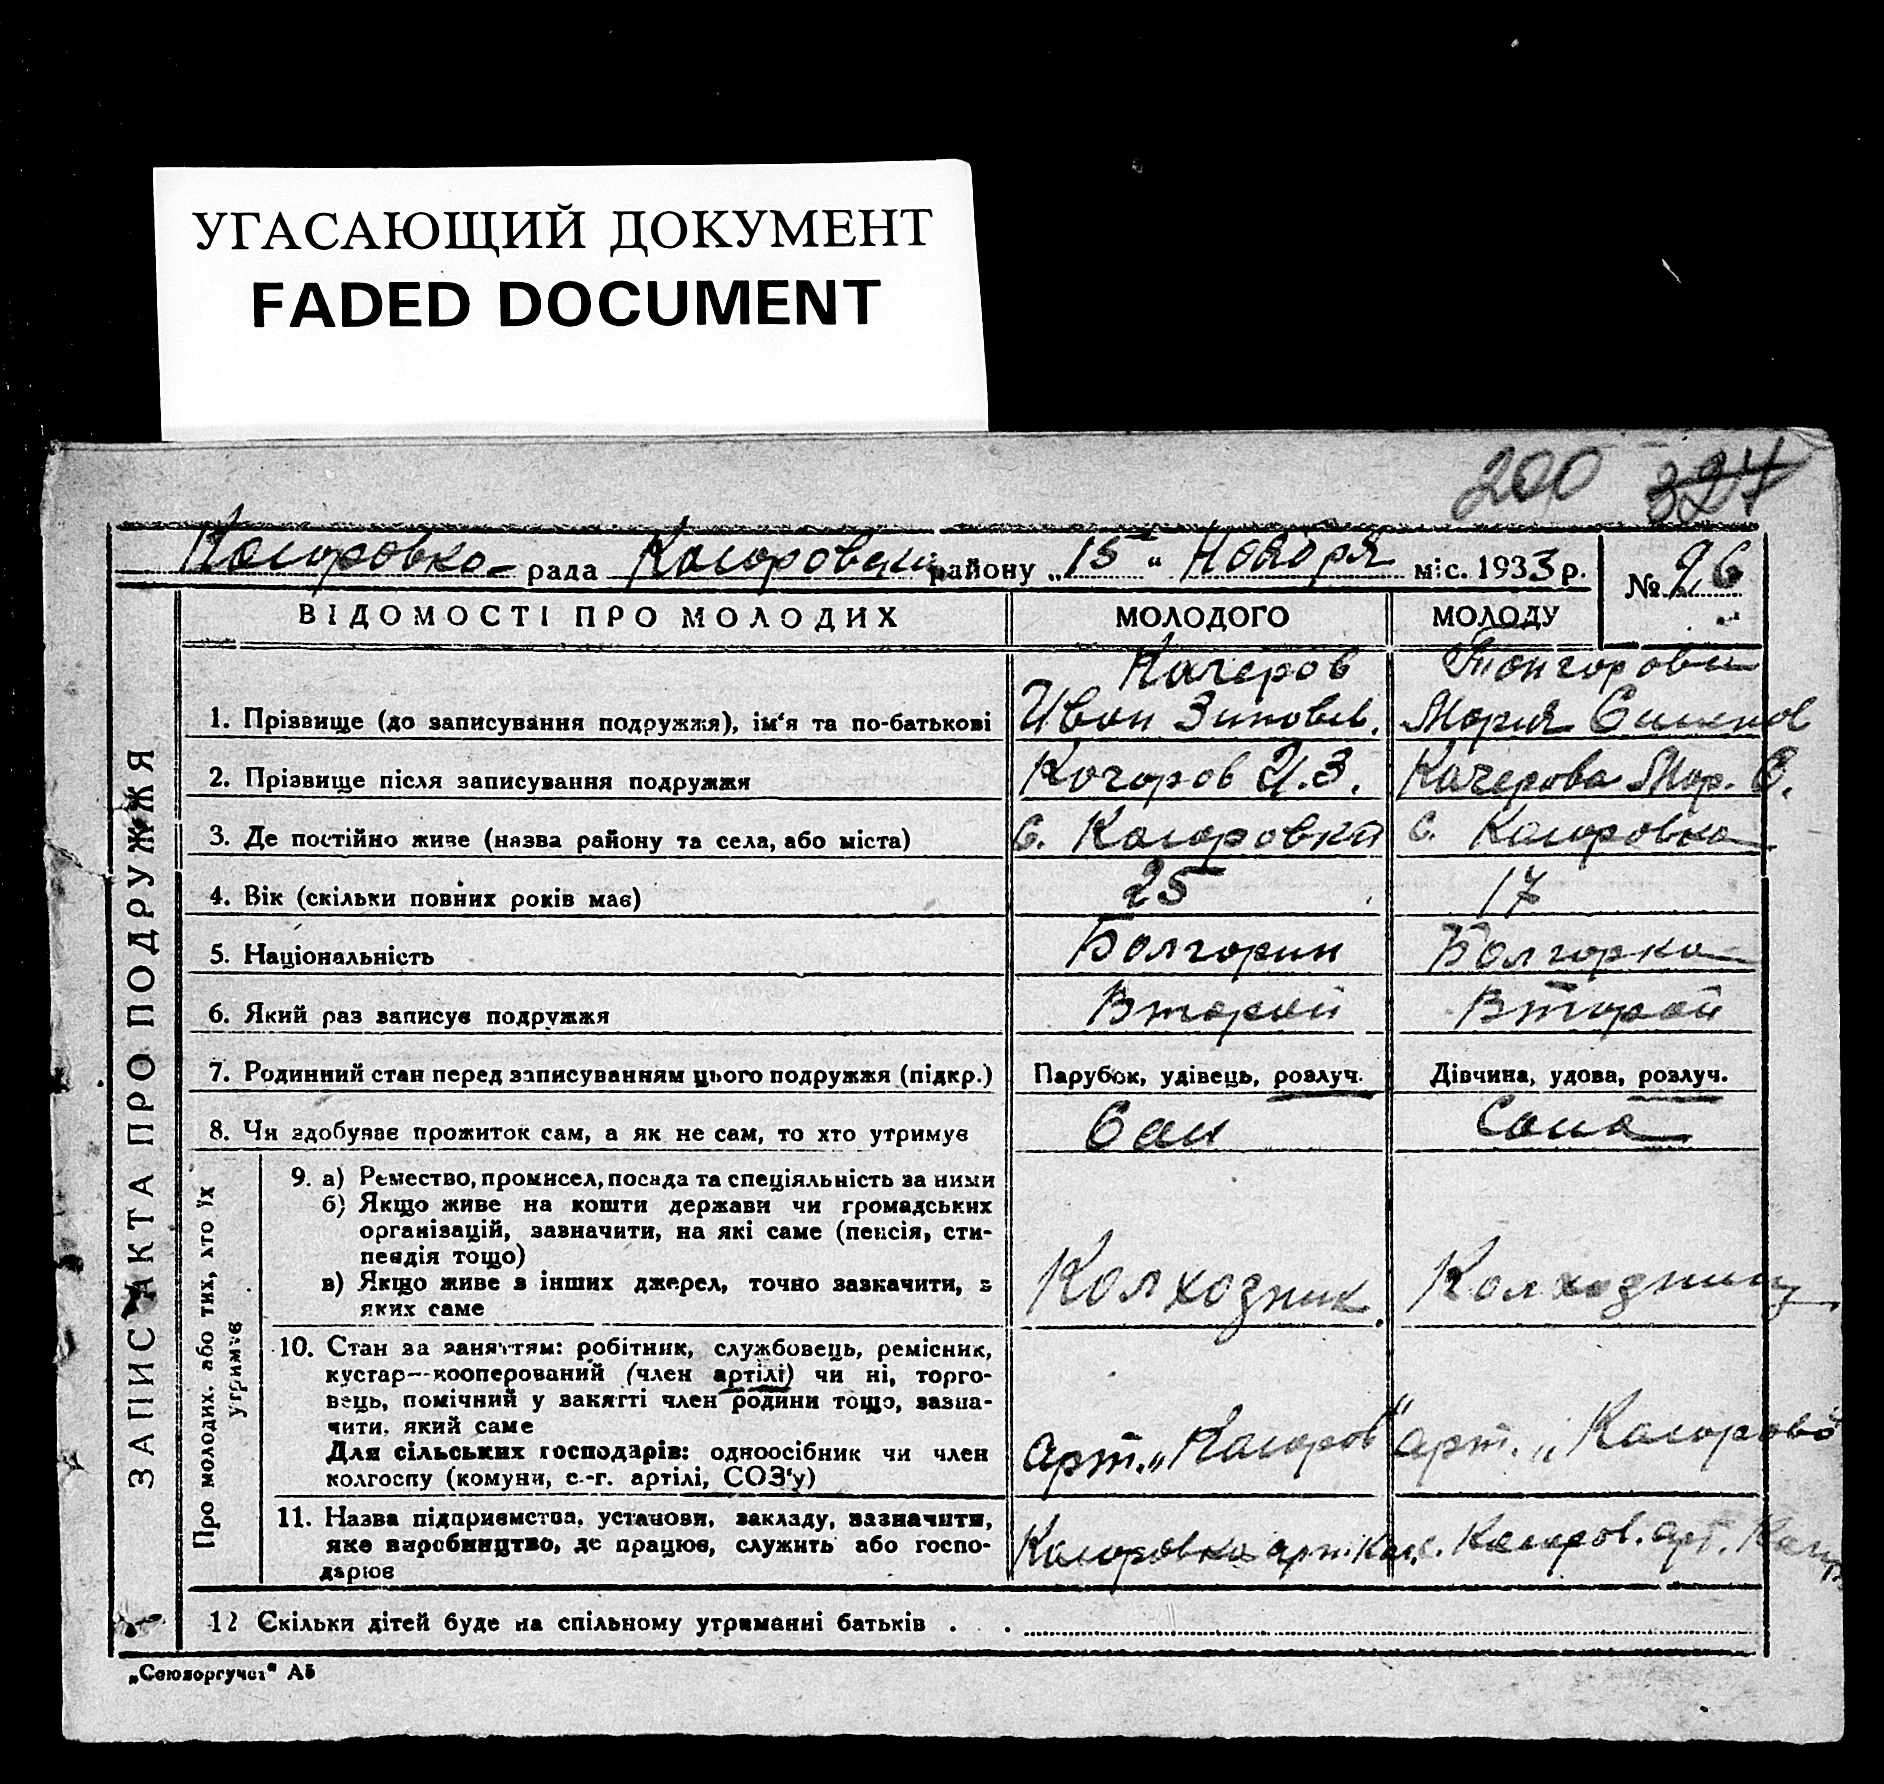 УГАСАЮЩИЙ ДОКУМЕНТ
FADED DOCUMENT
200 327
рада району „15“ Ноября міс. 1933 р.
№ 26
ЗАПИСКА ПРО ПОДРУЖЖЯ
ВІДОМОСТІ ПРО МОЛОДИХ МОЛОДОГО МОЛОДУ
Качеров
1. Прізвище (до записування подружжя), ім'я та по-батькові Иван Зиновьев. Мария Семенов
2. Прізвище після записування подружжя Кочоров И.З. Качерова Мар. С.
3. Де постійно живе (назва району та села, або міста) с. с.
4. Вік (скільки повних років має) 25 17
5. Національність Болгорин Болгорка
6. Який раз записує подружжя Второй Второй
7. Родинний стан перед записуванням цього подружжя (підкр.) Парубок, удівець, розлуч. Дівчина, удова, розлуч.
8. Чи здобуває прожиток сам, а як не сам, то хто утримує Сам Сама
Про молодих, або тих, хто їх
утримує
9. а) Ремество, промисел, посада та спеціяльність за ними
б) Якщо живе на кошти держави чи громадських
організацій, зазначити, на які саме (пенсія, сти-
пендія тощо)
в) Якщо живе з інших джерел, точно зазначити, з
яких саме
Колхозник. Колхозниц
10. Стан за заняттям: робітник, службовець, ремісник,
кустар—кооперований (член артілі) чи ні, торго-
вець, помічний у занятті член родини тощо, зазна-
чити, який саме
Для сільських господарів: одноосібник чи член
колгоспу (комуни, с.-г. артілі, СОЗ'у)
арт. арт.
11. Назва підприємства, установи, закладу, зазначити,
яке виробництво, де працює, служить або госпо-
дарює
12 Скільки дітей буде на спільному утриманні батьків . .
„Союзоргучет“ А5